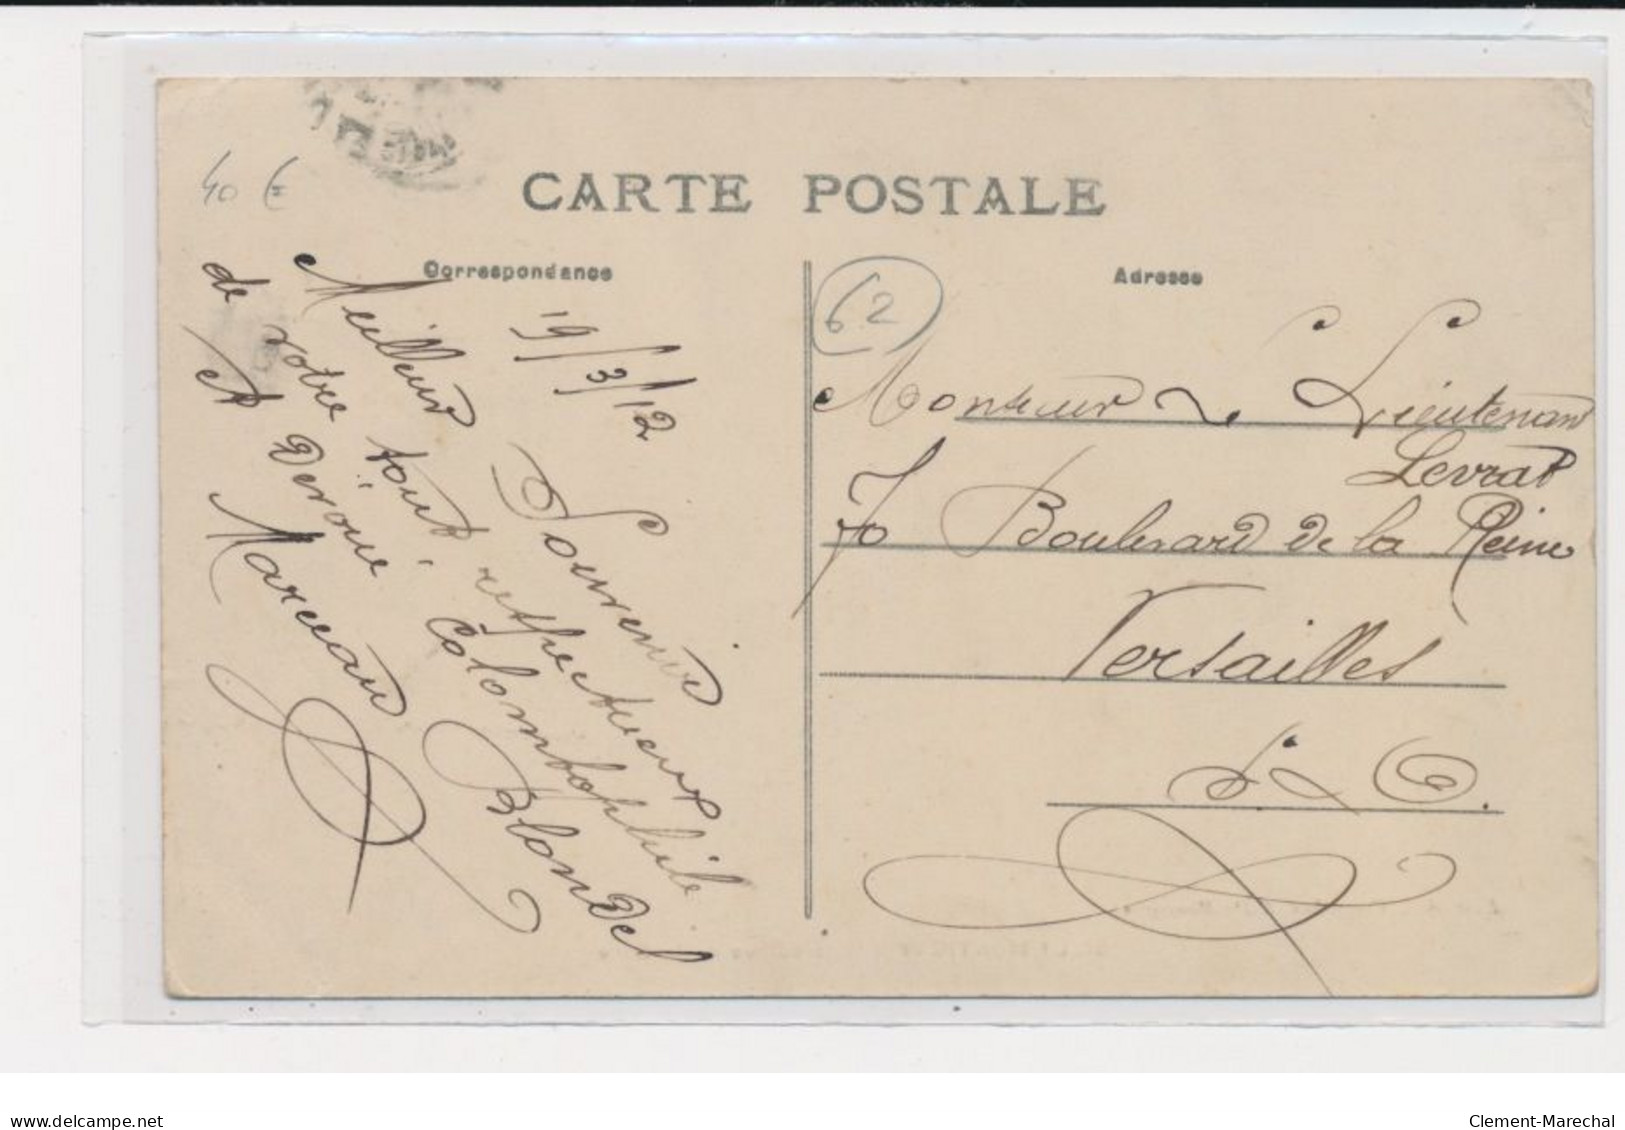 40 €
CARTE POSTALE
Correspondance
Adresse
62
19/3/12
Meilleur Souvenir
de votre tout respectueux
et Dévoué Colombophile
Marceau Blondel
Monsieur Le Lieutenant
Levrat
70 Boulevard de la Reine
Versailles
S. & O.
www.delcampe.net
Clement-Marechal